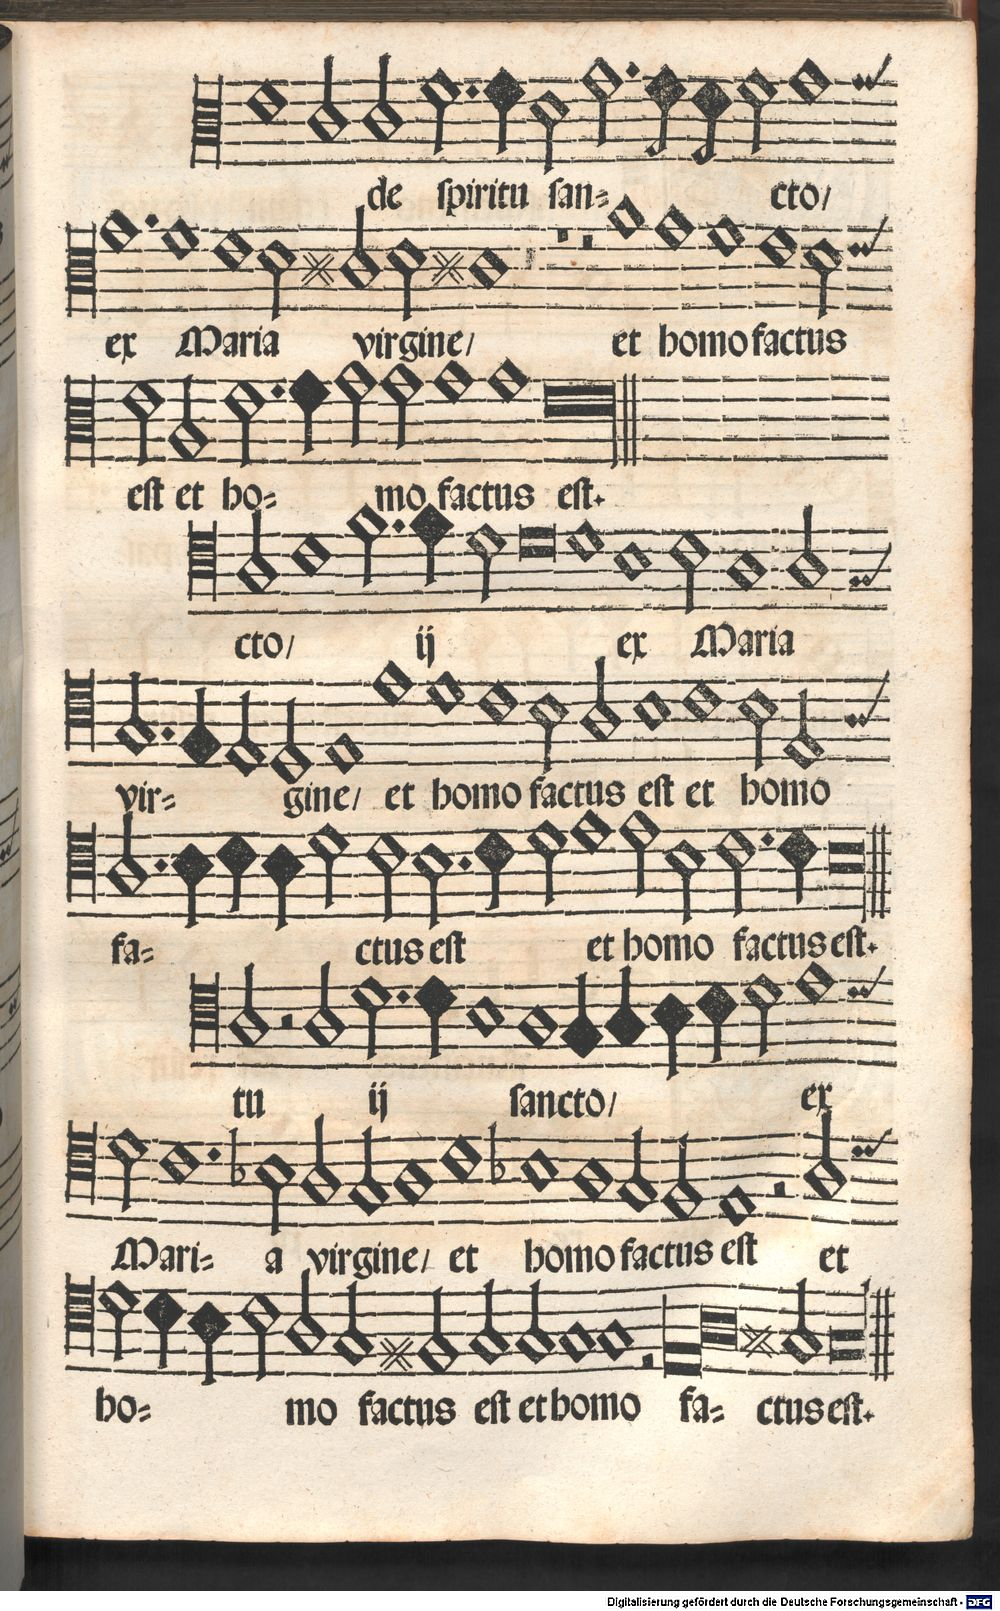 de spiritu san= cto/
ex Maria virgine/ et homo factus
est et ho= mo factus est.
cto/ ij ex Maria
vir= gine/ et homo factus est et homo
fa= ctus est et homo factus est.
tu ij sancto/ ex
Mari= a virgine/ et homo factus est et
ho= mo factus est et homo fa= ctus est.
Digitalisierung gefördert durch die Deutsche Forschungsgemeinschaft - DFG